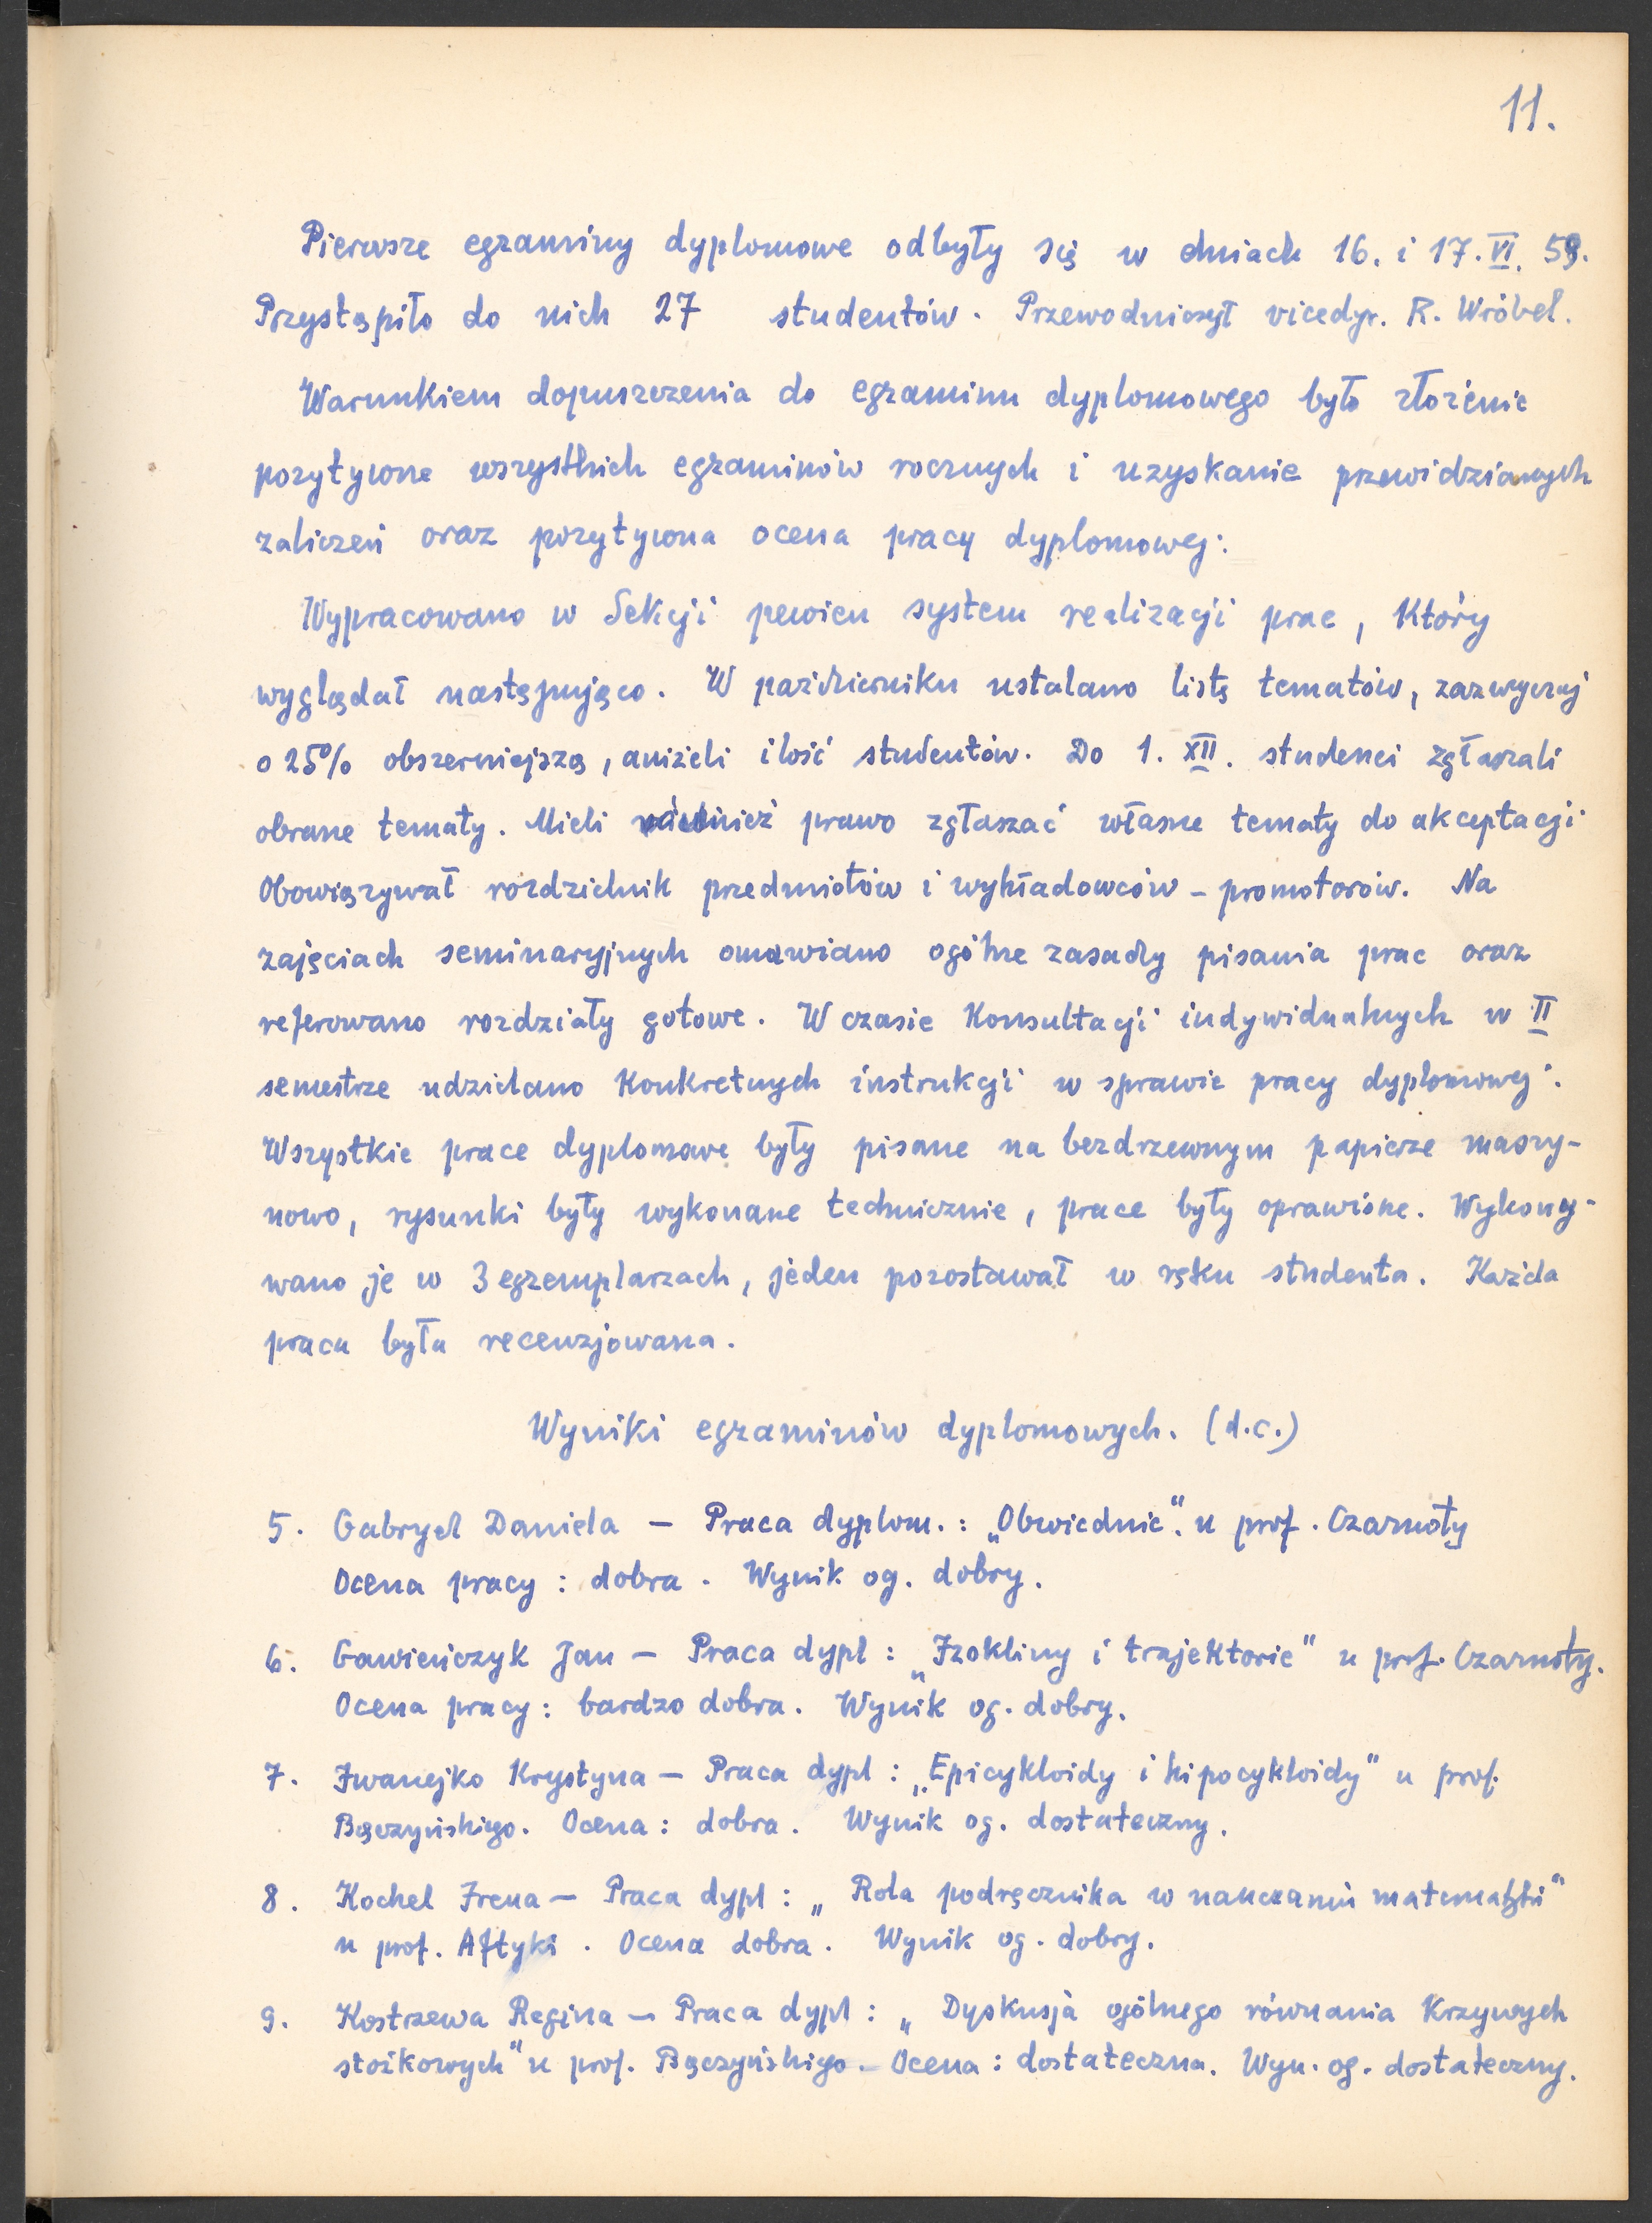 11.
Pierwsze egzaminy dyplomowe odbyły się w dniach 16. i 17. VI. 59.
Przystąpiło do nich 27 studentów. Przewodniczył vicedyr. R. Wróbel.
Warunkiem dopuszczenia do egzaminu dyplomowego było złożenie
pozytywne wszystkich egzaminów rocznych i uzyskanie przewidzianych
zaliczeń oraz pozytywna ocena pracy dyplomowej.
Wypracowano w Sekcji pewien system realizacji prac, który
wyglądał następująco. W październiku ustalano listę tematów, zazwyczaj
o 25% obszerniejszą, aniżeli ilość studentów. Do 1. XII. studenci zgłaszali
obrane tematy. Mieli również prawo zgłaszać własne tematy do akceptacji
Obowiązywał rozdzielnik przedmiotów i wykładowców - promotorów. Na
zajęciach seminaryjnych omawiano ogólne zasady pisania prac oraz
referowano rozdziały gotowe. W czasie konsultacji indywidualnych w II
semestrze udzielano konkretnych instrukcji w sprawie pracy dyplomowej.
Wszystkie prace dyplomowe były pisane na bezdrzewnym papierze maszy-
nowo, rysunki były wykonane technicznie, prace były oprawione. Wykony-
wano je w 3 egzemplarzach, jeden pozostawał w ręku studenta. Każda
praca była recenzjowana.
Wyniki egzaminów dyplomowych. (d.c.)
5. Gabryel Daniela — Praca dyplom.: „Obwiednie". u prof. Czarnoty
Ocena pracy: dobra. Wynik og. dobry.
6. Gawieńczyk Jan — Praca dypl: „Izokliny i trajektorie" u prof. Czarnoty.
Ocena pracy: bardzo dobra. Wynik og. dobry.
7. Iwanejko Krystyna — Praca dypl: „Epicykloidy i hipocykloidy" u prof.
Bączyńskiego. Ocena: dobra. Wynik og. dostateczny.
8. Kochel Irena — Praca dypl: „Rola podręcznika w nauczaniu matematyki"
u prof. Aftyki. Ocena dobra. Wynik og. dobry.
9. Kostrzewa Regina — Praca dypl: „Dyskusja ogólnego równania krzywych
stożkowych" u prof. Bączyńskiego. Ocena: dostateczna. Wyn. og. dostateczny.